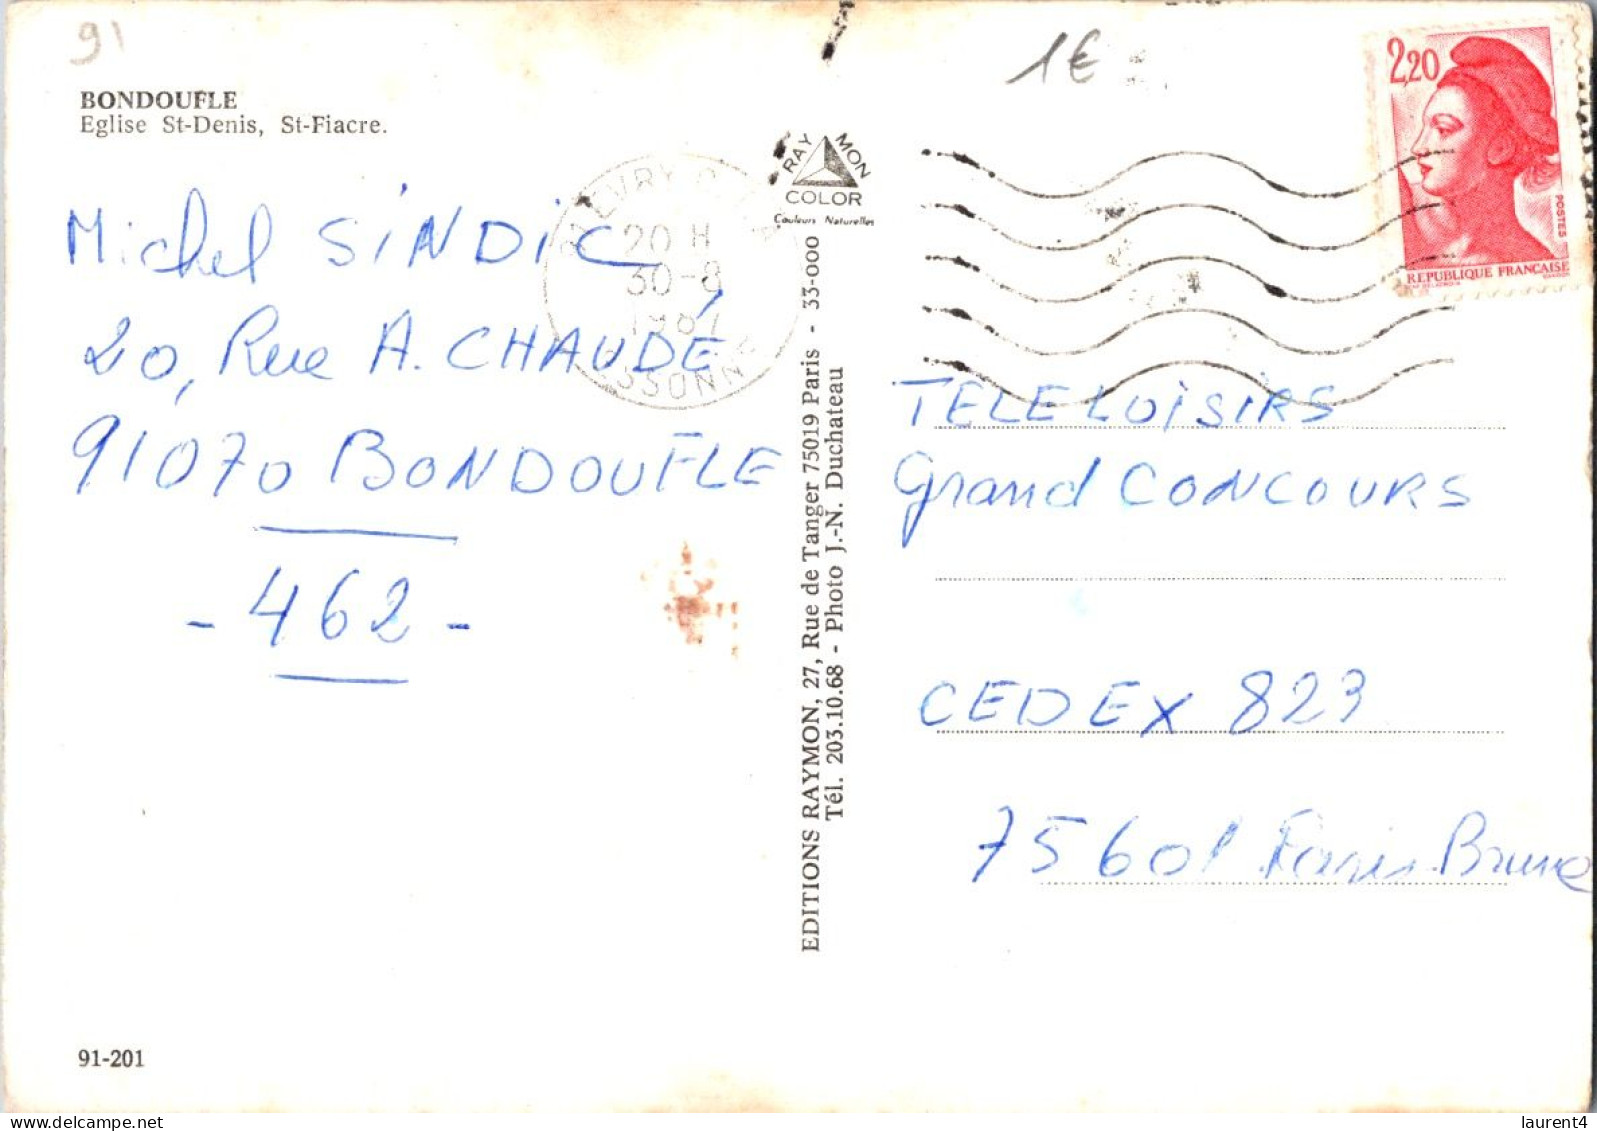 91
1€
BONDOUFLE
Eglise St-Denis, St-Fiacre.
Michel SINDIC
20, Rue A. CHAUDÉ
91070 BONDOUFLE
- 462 -
91-201
RAYMON
COLOR
Couleurs Naturelles
20 H
30-8
1987
ESSONNE
EDITIONS RAYMON, 27, Rue de Tanger 75019 Paris - 33-000
Tél. 203.10.68 - Photo J.-N. Duchateau
2,20
POSTES
REPUBLIQUE FRANÇAISE
TELELOISIRS
Grand CONCOURS
CEDEX 823
75601 Paris Brune
laurent4